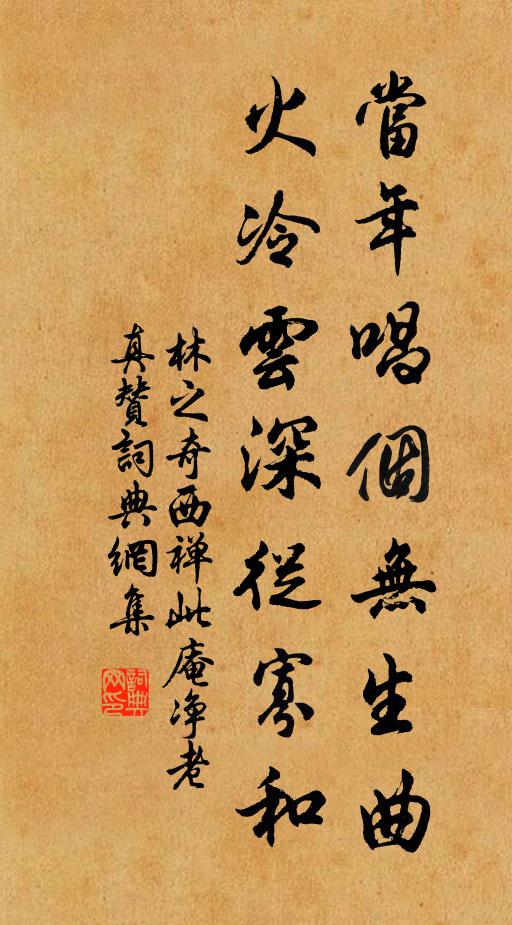 當年唱個無生曲
火冷雲深從寡和
林之奇西禅此庵净老
真赞詞典網集
詞典網印